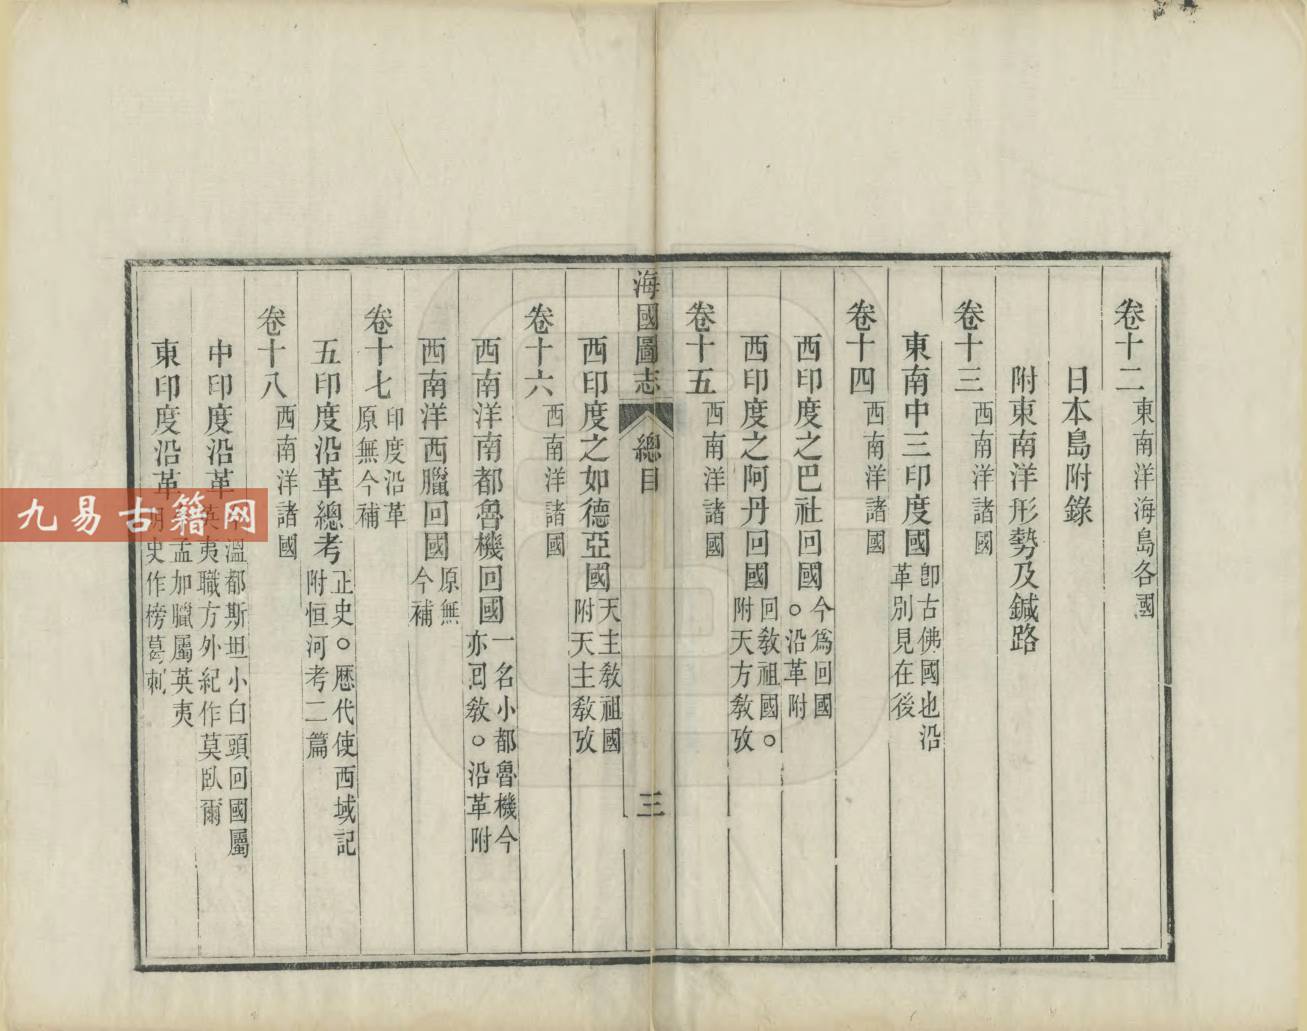 卷十二 東南洋海島各國
日本島附錄
附東南洋形勢及鍼路
卷十三 西南洋諸國
東南中三印度國 卽古佛國也沿革別見在後
卷十四 西南洋諸國
西印度之巴社回國 今爲回國○沿革附
西印度之阿丹回國 回敎祖國○附天方敎攷
卷十五 西南洋諸國
海國圖志 總目 三
西印度之如德亞國 天主敎祖國附天主敎攷
卷十六 西南洋諸國
西南洋南都魯機回國 一名小都魯機今亦回敎○沿革附
西南洋西臘回國 原無今補
卷十七 印度沿革原無今補
五印度沿革總考 正史○歷代使西域記附恒河考二篇
卷十八 西南洋諸國
中印度沿革 溫都斯坦小白頭回國屬英夷職方外紀作莫臥爾
東印度沿革 孟加臘屬英夷明史作榜葛剌
九易古籍网